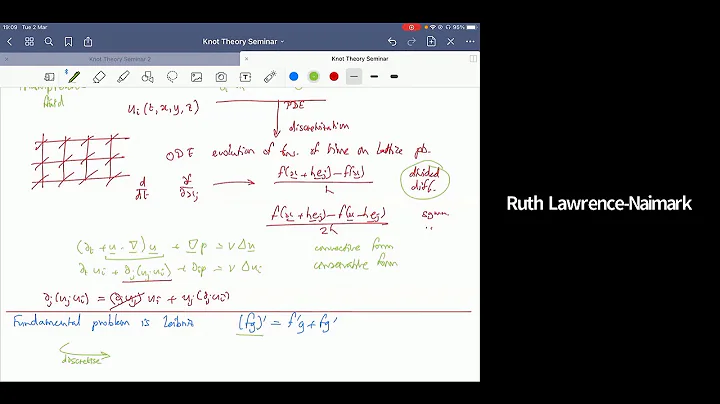 19:09 Tue 2 Mar
95%
Knot Theory Seminar
Knot Theory Seminar 2
Knot Theory Seminar
fluid
u_i(t, x, y, z)
PDE
discretization
ODE evolution of fns. of time on lattice pts.
d/dt ∂f/∂x_j → (f(x + he_j) − f(x))/h
divided diff.
(f(x + he_j) − f(x − he_j))/2h
symm
(∂_t + u · ∇) u + ∇p = ν Δu convective form
∂_t u_i + ∂_j(u_j u_i) + ∂_i p = ν Δu_i conservative form
∂_j(u_j u_i) = (∂_j u_j) u_i + u_j (∂_j u_i)
Fundamental problem is Leibniz (fg)' = f'g + fg'
discretise
Ruth Lawrence-Naimark